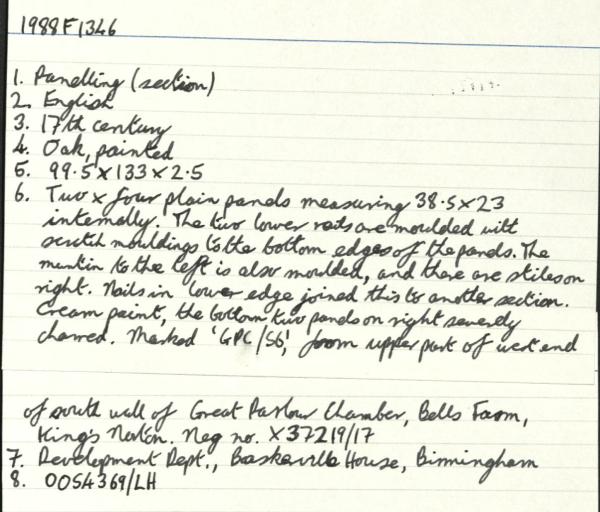 1988F1346
1. Panelling (section)
2. English
3. 17th century
4. Oak, painted
5. 99.5 x 133 x 2.5
6. Two x four plain panels measuring 38.5 x 23
internally. The two lower rails are moulded with
scratch mouldings to the bottom edges of the panels. The
muntin to the left is also moulded, and there are stiles on
right. Nails in lower edge joined this to another section.
Cream paint, the bottom two panels on right severely
charred. Marked 'GPC/S6', from upper part of west end
of south wall of Great Parlour Chamber, Bells Farm,
King's Norton. Neg no. X37219/17
7. Development Dept., Baskerville House, Birmingham
8. 0054369/LH